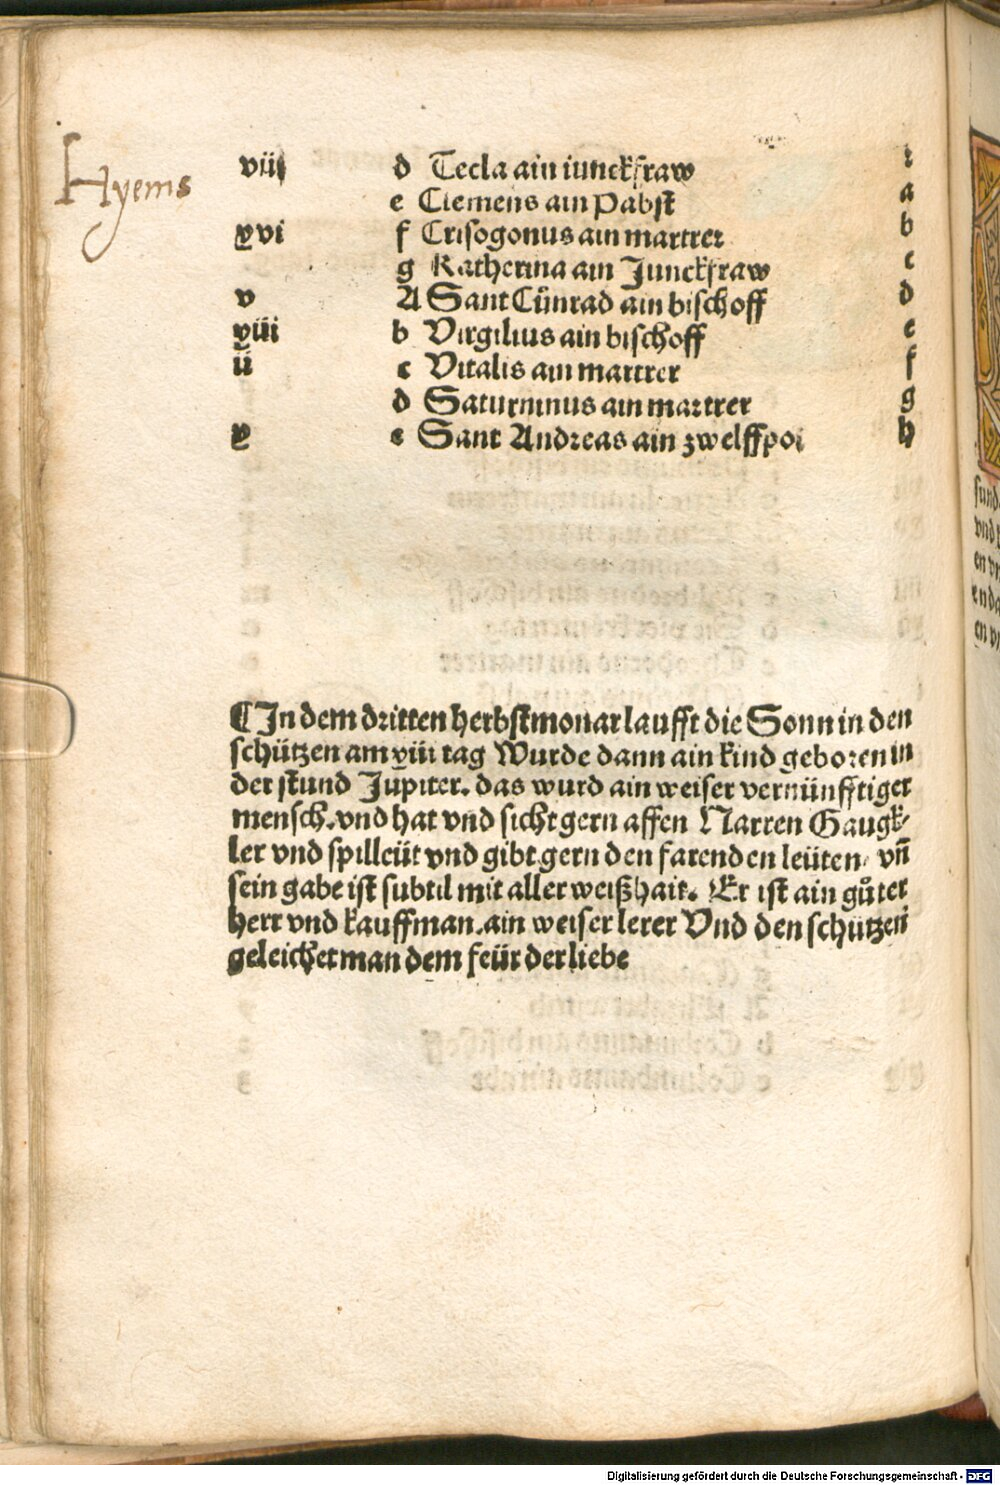 Hyems
viii d Tecla ain iunckfraw
e Clemens ain Pabst a
xvi f Crisogonus ain martrer b
g Katherina ain Junckfraw c
v A Sant Cůnrad ain bischoff d
xiii b Virgilius ain bischoff e
ii c Vitalis ain martrer f
d Saturninus ain martrer g
x e Sant Andreas ain zwelffpot h
¶ In dem dritten herbstmonat laufft die Sonn in den
schützen am xiii tag Wurde dann ain kind geboren in
der stund Jupiter. das wurd ain weiser vernünfftiger
mensch. vnd hat vnd sicht gern affen Narren Gaugk⸗
ler vnd spilleüt vnd gibt gern den farenden leüten, vñ
sein gabe ist subtil mit aller weißhait. Er ist ain gůter
herr vnd kauffman. ain weiser lerer Vnd den schützen
geleichet man dem feür der liebe
Digitalisierung gefördert durch die Deutsche Forschungsgemeinschaft - DFG